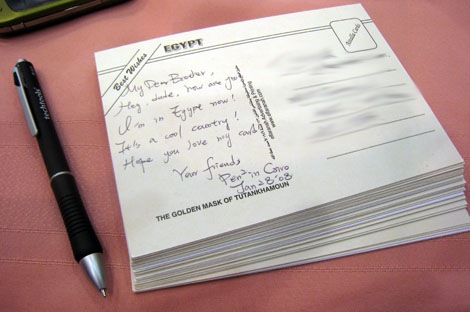 EGYPT
Best Wishes
My Dear Brother,
Hey, dude, how are you?
I'm in Egypt now!
It's a cool country!
Hope you love my card
Your friend,
in Cairo
Jan 28 '08
THE GOLDEN MASK OF TUTANKHAMOUN